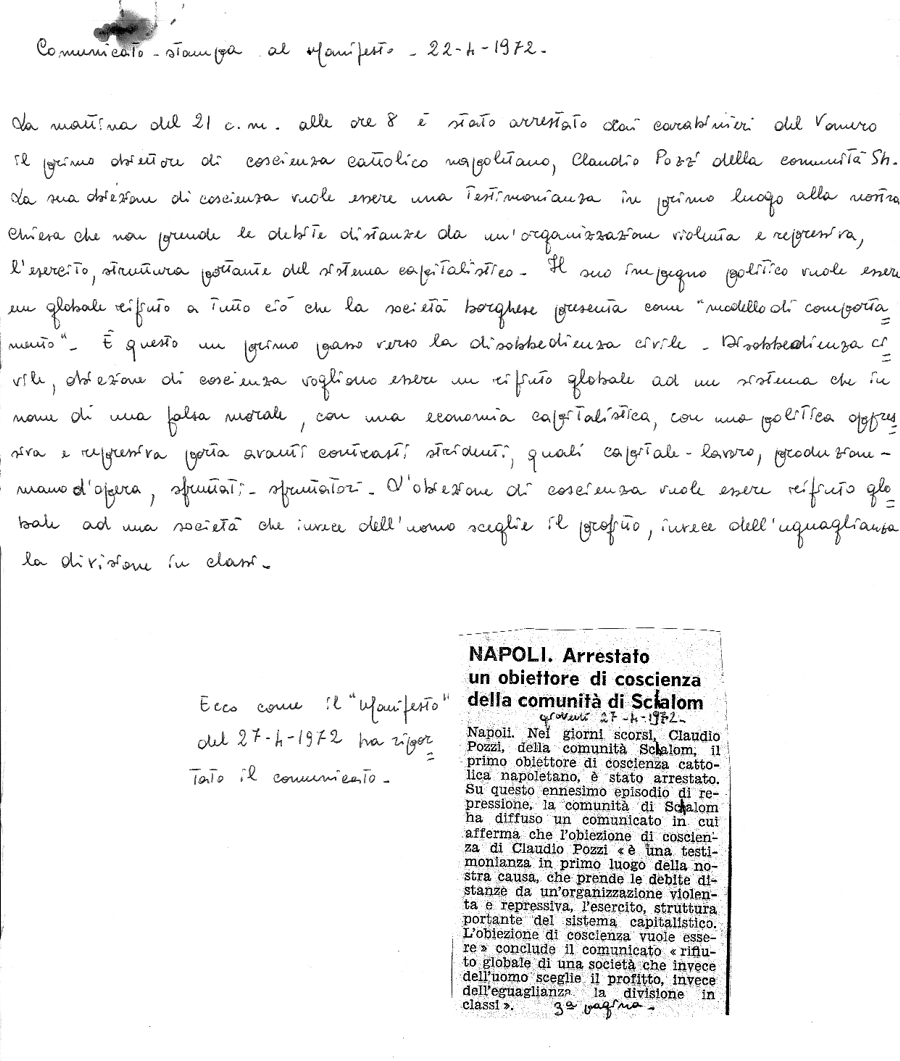 Comunicato-stampa al Manifesto - 22-4-1972 -
La mattina del 21 c.m. alle ore 8 è stato arrestato dai carabinieri del Vomero
il primo obiettore di coscienza cattolico napoletano, Claudio Pozzi della comunità Sh.
La sua obiezione di coscienza vuole essere una testimonianza in primo luogo alla nostra
chiesa che non prende le debite distanze da un'organizzazione violenta e repressiva,
l'esercito, struttura portante del sistema capitalistico - Il suo impegno politico vuole essere
un globale rifiuto a tutto ciò che la società borghese presenta come "modello di comporta
mento" - È questo un primo passo verso la disobbedienza civile - Disobbedienza ci
vile, obiezione di coscienza vogliono essere un rifiuto globale ad un sistema che in
nome di una falsa morale, con una economia capitalistica, con una politica oppres
siva e repressiva porta avanti contrasti stridenti, quali capitale - lavoro, produzione -
mano d'opera, sfruttati - sfruttatori - L'obiezione di coscienza vuole essere rifiuto glo
bale ad una società che invece dell'uomo sceglie il profitto, invece dell'uguaglianza
la divisione in classi -
Ecco come il "Manifesto"
del 27-4-1972 ha ripor
tato il comunicato -
NAPOLI. Arrestato
un obiettore di coscienza
della comunità di Scialom
giovedì 27-4-1972-
Napoli. Nei giorni scorsi, Claudio
Pozzi, della comunità Scialom, il
primo obiettore di coscienza catto-
lica napoletano, è stato arrestato.
Su questo ennesimo episodio di re-
pressione, la comunità di Scialom
ha diffuso un comunicato in cui
afferma che l'obiezione di coscien-
za di Claudio Pozzi « è una testi-
monianza in primo luogo della no-
stra causa, che prende le debite di-
stanze da un'organizzazione violen-
ta e repressiva, l'esercito, struttura
portante del sistema capitalistico.
L'obiezione di coscienza vuole esse-
re » conclude il comunicato « rifiu-
to globale di una società che invece
dell'uomo sceglie il profitto, invece
dell'eguaglianza la divisione in
classi ».
3ª pagina -